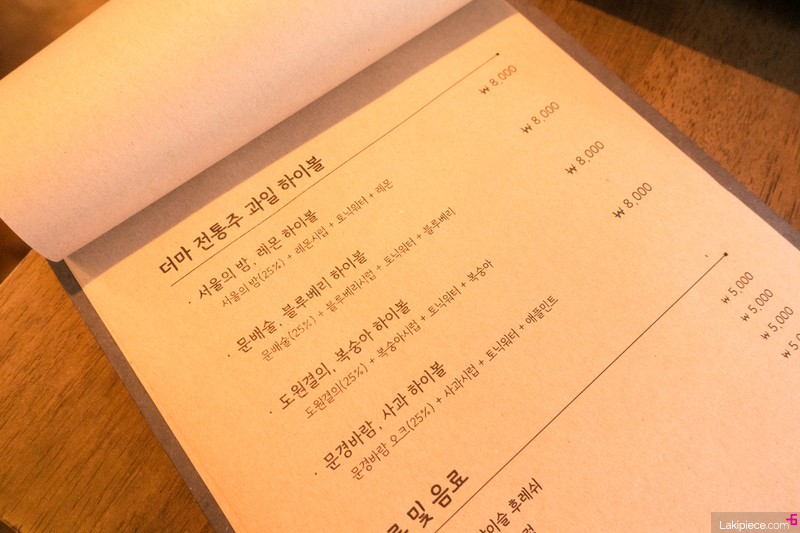 더마 전통주 과일 하이볼
· 서울의 밤, 레몬 하이볼 ₩ 8,000
서울의 밤(25%) + 레몬시럽 + 토닉워터 + 레몬
· 문배술, 블루베리 하이볼 ₩ 8,000
문배술(25%) + 블루베리시럽 + 토닉워터 + 블루베리
· 도원결의, 복숭아 하이볼 ₩ 8,000
도원결의(25%) + 복숭아시럽 + 토닉워터 + 복숭아
· 문경바람, 사과 하이볼 ₩ 8,000
문경바람 오크(25%) + 사과시럽 + 토닉워터 + 애플민트
및 음료
후레쉬 ₩ 5,000
₩ 5,000
₩ 5,000
Lakipiece.com